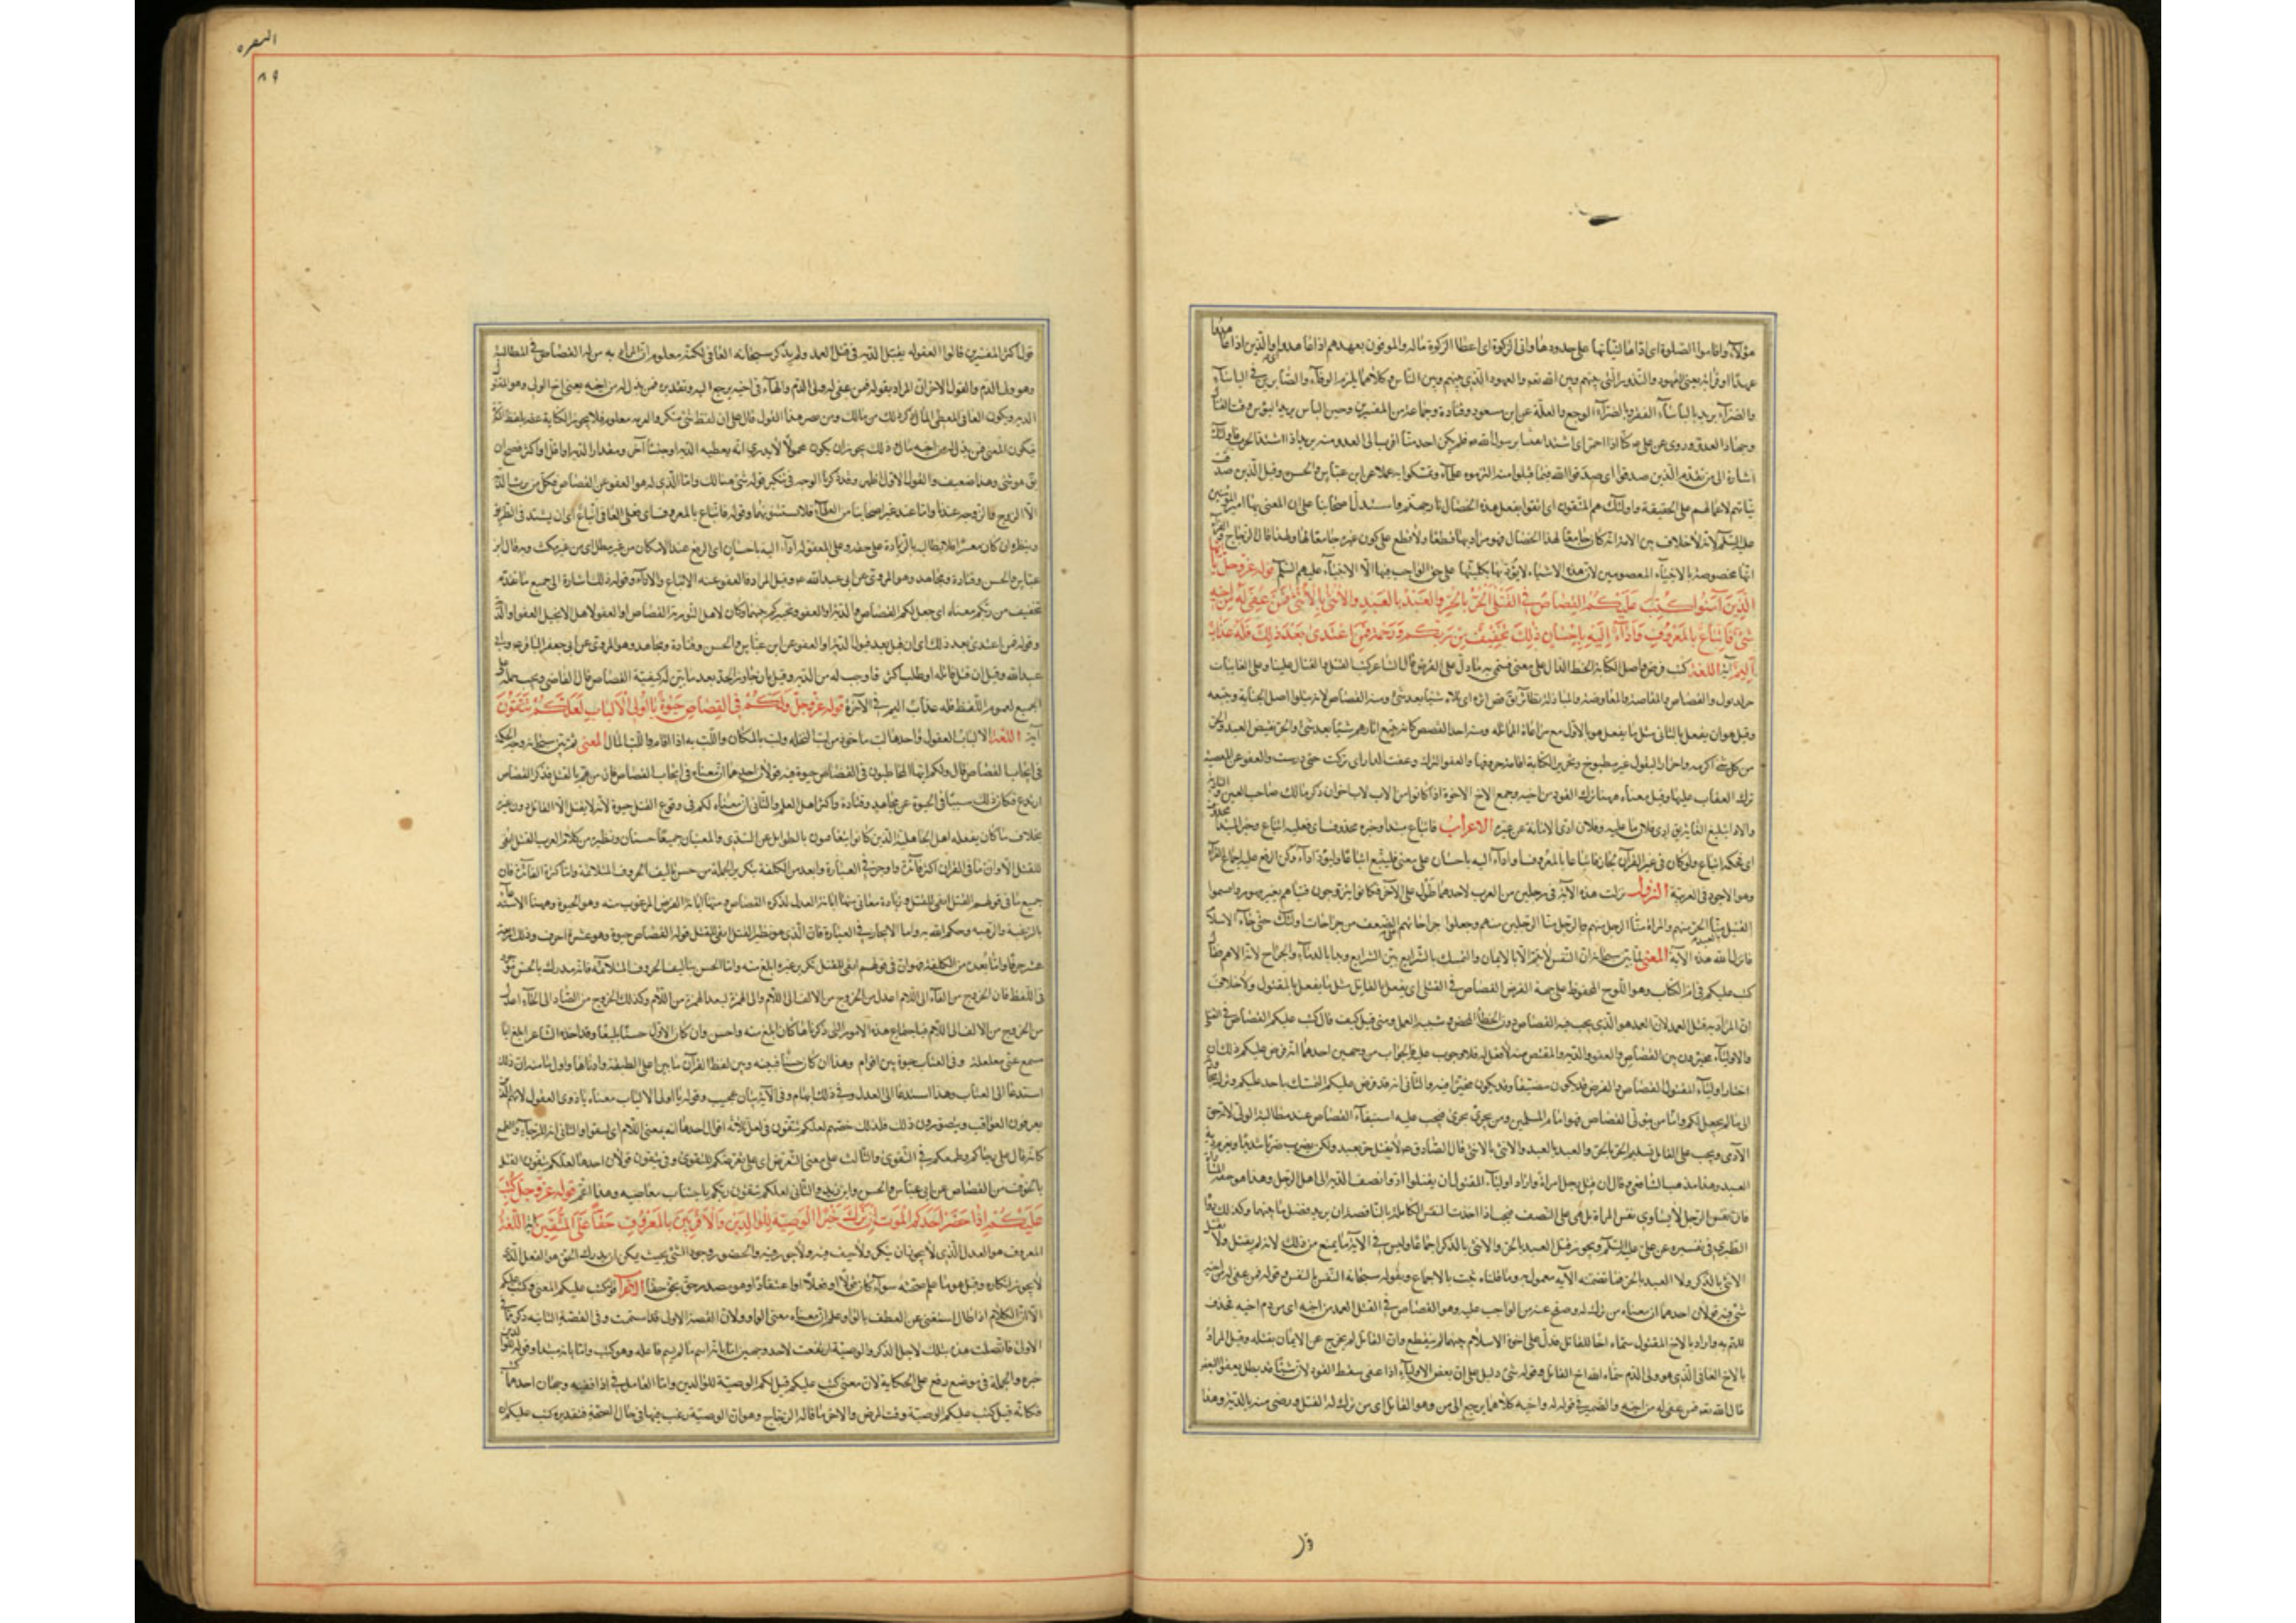 هؤلاء واقاموا الصلوة اى اداها لميقاتها على حدودها واتى الزكوة اى اعطا الزكوة ماله والموفون بعهدهم اذا عاهدوا اى والذين اذا عاهدوا
عهدا اوفوا به يعنى العهود والنذور التى بينهم وبين الله تعالى والعهود الذى بينهم وبين الناس وكلاهما يلزم الوفاء به والصابرين فى الباساء
والضراء يريد بالباساء الفقر وبالضراء الوجع والعلة عن ابن مسعود وقتادة وجماعة من المفسرين وحين الباس يريد وقت القتال
وجهاد العدو وروى عن على ع كنا اذا احمر اى اشتد اتقينا برسول الله ص فلم يكن احد منا اقرب الى العدو منه يريد اذا اشتد الحرب واولئك
اشارة الى من تقدم الذين صدقوا اى صدقوا الله فيما قبلوا منه التزموه علما وتمسكوا به عملا عن ابن عباس والحسن وقيل الذين صدقت
نياتهم لاعمالهم على الحقيقة واولئك هم المتقون اى اتقوا بفعل هذه الخصال نار جهنم واستدل اصحابنا على ان المعنى بها امير المؤمنين
عليه السلم لانه لا خلاف بين الامة انه كان جامعا لهذه الخصال فهو مراد بها قطعا ولا قطع على كون غيره جامعا لها ولهذا قال الزجاج والفراء
انها مخصوصة بالانبياء المعصومين لان هذه الاشياء لا يؤديها بكليتها على حق الواجب فيها الا الانبياء عليهم السلم قوله عز وجل يا ايها
الذين آمنوا كتب عليكم القصاص فى القتلى الحر بالحر والعبد بالعبد والانثى بالانثى فمن عفى له من اخيه
شئ فاتباع بالمعروف واداء اليه باحسان ذلك تخفيف من ربكم ورحمة فمن اعتدى بعد ذلك فله عذاب
اليم آية اللغة كتب فرض واصل الكتابة الخط الدال على معنى فسمى به ما دل على الفرض قال الشاعر كتب القتل والقتال علينا وعلى الغانيات
جر الذيول والقصاص والمقاصة والمعاوضة والمبادلة نظائر يق قص اثره اى تلاه شيئا بعد شئ ومنه القصاص لانه يتلو اصل الجناية ويتبعه
وقيل هو ان يفعل بالثانى مثل ما يفعل هو بالاول مع مراعاة المماثلة ومنه اخذ القصص كانه يتبع آثارهم شيئا بعد شئ والحر نقيض العبد والحر
من كل شئ اكرمه واحرار البقول غير مطبوخ وتحرير الكتابة اقامة حروفها والعفو الترك وعفت الدار اى تركت حتى درست والعفو عن المعصية
ترك العقاب عليها وقيل معناه ههنا ترك القود من اخيه وجمع الاخ الاخوة اذا كانوا من لاب
والاداء تبليغ الغاية يق ادى فلان ما عليه وفلان ادى الامانة عن غيره الاعراب فاتباع مبتدا وخبره محذوف اى فعليه اتباع
اى فحكمه اتباع ولو كان فى غير القرآن لجاز فاتباعا بالمعروف واداء اليه باحسان على معنى فليتبع اتباعا وليؤد اداء ولكن الرفع عليه اجماع القراء
وهو الاجود فى العربية النزول نزلت هذه الآية فى حيين من العرب لاحدهما طول على الآخر فكانوا يتزوجون نساءهم بغير مهور واقسموا
لنقتلن بالعبد منا الحر منهم وبالمراة منا الرجل منهم وبالرجل منا الرجلين منهم وجعلوا جراحاتهم على الضعف من جراحات اولئك حتى جاء الاسلام
فانزل الله هذه الآية المعنى لما بين سبحانه ان النفس لا يتم الا بالايمان والتمسك بالشرايع بين الشرايع وبدا بالدماء والجراح لانه الاهم فقال
كتب عليكم فى ام الكتاب وهو اللوح المحفوظ على جهة الفرض القصاص فى القتلى اى يفعل بالقاتل مثل ما يفعل بالمقتول ولا خلاف
ان المراد به قتل العمد لان العمد هو الذى يجب فيه القصاص دون الخطا المحض وشبيه العمد ومتى قيل كيف قال كتب عليكم القصاص فى القتلى
والاولياء مخيرون بين القصاص والعفو والدية والمقتص منه لا فعل له فلا وجوب عليه فالجواب من وجهين احدهما انه فرض عليكم ذلك ان
اختار اولياء المقتول القصاص والفرض قد يكون مضيقا وقد يكون مخيرا فيه والثانى انه فرض عليكم التمسك بما حد عليكم وترك مجاوزته
الى ما لم يجعل لكم واما من يتولى القصاص فهو امام المسلمين ومن يجرى مجراه فيجب عليه استيفاء القصاص عند مطالبة الولى لانه حق
الآدمى ويجب على القاتل تسليم النفس الحر بالحر والعبد بالعبد والانثى بالانثى قال الصادق ع لا يقتل حر بعبد ولكن يضرب ضربا شديدا ويغرم دية
العبد وهذا مذهب الشافعى وقال ان قتل رجل امراة فاراد اولياء المقتول ان يقتلوه ادوا نصف الدية الى اهل الرجل وهذا هو حقيقة المساواة
فان نفس الرجل لا يساوى نفس المراة بل هى على النصف فيجب اذا اخذت النفس الكاملة بالناقصة ان يرد فضل ما بينهما وكذلك رواه
الطبرى فى تفسيره عن على عليه السلم ويجوز قتل العبد بالحر والانثى بالذكر اجماعا وليس فى الآية ما يمنع من ذلك لانه لم يقل ولا يقتل
الانثى بالذكر ولا العبد بالحر فما تضمنته الآية معمول به وما قلناه ثبت بالاجماع وبقوله سبحانه النفس بالنفس وقوله فمن عفى له من اخيه
شئ فيه قولان احدهما ان معناه من ترك له وصفح عنه من الواجب عليه وهو القصاص فى القتل العمد من اخيه اى من دم اخيه فحذف
للعلم به واراد بالاخ المقتول سماه اخا للقاتل فدل على اخوة الاسلام بينهما لم ينقطع وان القاتل لم يخرج عن الايمان بقتله وقيل المراد
بالاخ العافى الذى هو ولى الدم سماه الله اخ القاتل وقوله شئ دليل على ان بعض الاولياء اذا عفى سقط القود لان شيئا قد بطل بعفو البعض
قال الله تعالى فمن عفى له من اخيه والضمير فى قوله له واخيه كلاهما يرجع الى من وهو القاتل اى من ترك له القتل ورضى منه بالدية وهذا
قول
البقره
٨٩
قول اكثر المفسرين قالوا العفو له يقبل الدية فى قتل العمد ولم يذكر سبحانه العافى لكنه معلوم ان المراد به من له القصاص فى المطالبة
وهو ولى الدم والقول الاخر ان المراد بقوله فمن عفى له ولى الدم والهاء فى اخيه يرجع اليه وتقديره فمن بذل له من اخيه يعنى اخ الولى وهو المقتول
الدية ويكون العافى المعطى المال ذكر ذلك من مالك ومن نصر هذا القول قال على ان لفظ شئ منكر والقود معلوم فلا يجوز الكناية عنه بلفظ النكرة
فيكون المعنى فمن بذل له من اخيه مال وذلك يجوز ان يكون مجهولا لا يدرى انه يعطيه الدية او جنسا آخر ومقدار الدية او اقل او اكثر فصح ان
يق فيه شئ وهذا ضعيف والقول الاول اظهر وقد ذكرنا الوجه فى تنكير قوله شئ هنالك واما الذى له هو العفو عن القصاص فكل من يرث الدية
الا الزوج والزوجة عندنا واما عند غير اصحابنا من العلماء فلا يستثنونهما وقوله فاتباع بالمعروف اى فعلى العافى اتباع اى ان لا يشتد فى الطلب
وينظره ان كان معسرا ولا يطالبه بالزيادة على حقه وعلى المعفو له اداء اليه باحسان اى الدفع عند الامكان من غير مطل اى من غير مكث وبه قال ابن
عباس والحسن وقتادة ومجاهد وهو المروى عن ابى عبد الله ع وقيل المراد فالعفو عنه الاتباع والاداء وقوله ذلك اشارة الى جميع ما تقدم
تخفيف من ربكم معناه اى جعل لكم القصاص والدية او العفو وتخييركم بينهما وكان لاهل التورية القصاص او العفو ولاهل الانجيل العفو او الدية
وقوله فمن اعتدى بعد ذلك اى ان قتل بعد قبول الدية او العفو عن ابن عباس والحسن وقتادة ومجاهد وهو المروى عن ابى جعفر الباقر ع وابى
عبد الله وقيل ان قتل غير قاتله او طلب اكثر مما وجب له من الدية وقيل بان جاوز الحد بعد ما بين له كيفية القصاص قال القاضى ويجب حمله على
الجميع لعموم اللفظ فله عذاب اليم فى الآخرة قوله عز وجل ولكم فى القصاص حيوة يا اولى الالباب لعلكم تتقون
آية اللغة الالباب العقول واحدها لب ماخوذ من لب النخلة ولب بالمكان والب به اذا اقام واللب البال المعنى ثم بين سبحانه وجه الحكمة
فى ايجاب القصاص قال ولكم ايها المخاطبون فى القصاص حيوة فيه قولان احدهما ان معناه فى ايجاب القصاص لان من هم بالقتل فذكر القصاص
ارتدع فكان ذلك سببا فى الحيوة عن مجاهد وقتادة واكثر اهل العلم والثانى ان معناه لكم فى وقوع القتل حيوة لانه لا يقتل الا القاتل دون غيره
بخلاف ما كان يفعله اهل الجاهلية الذين كانوا يتفانون بالطوايل عن السدى والمعنيان جميعا حسنان ونظيره من كلام العرب القتل انفى
للقتل الا ان ما فى القرآن اكثر فائدة واوجز فى العبارة وابعد من الكلفة بتكرير الجملة واحسن تاليفا بالحروف المتلائمة واما كثرة الفائدة فان
جميع ما فى قولهم القتل انفى للقتل وزيادة معانى منها ابانة العدل لذكره القصاص ومنها ابانة الغرض المرغوب فيه وهو الحيوة ومنها الاستدعاء
بالرغبة والرهبة وحكم الله به واما الايجاز فى العبارة فان الذى هو نظير القتل انفى للقتل قوله القصاص حيوة وهو عشرة احرف وذلك اربعة
عشر حرفا واما بعده من الكلفة فهو ان فى قولهم انفى للقتل تكرير غيره ابلغ منه واما الحسن بتاليف الحروف المتلائمة فانه مدرك بالحس موجود
فى اللفظ فان الخروج من الفاء الى اللام اعدل من الخروج من اللام الى الهمزة لبعد الهمزة من اللام وكذلك الخروج من الصاد الى الحاء اعدل
من الخروج من الالف الى اللام فباجتماع هذه الامور التى ذكرناها كان ابلغ منه واحسن وان كان الاول حسنا بليغا وقد اخذه الشاعر
وفى العتاب حيوة بين اقوام وهذا وان كان حسنا فبينه وبين لفظ القرآن ما بين اعلى الطبقة وادناها واول ما فيه ان ذلك
استدعاء الى العتاب وهذا استدعاء الى العدل وفى ذلك ابهام وفى الآية بيان عجيب وقوله يا اولى الالباب معناه يا ذوى العقول لانهم الذين
يعرفون العواقب ويتصورون ذلك فلذلك خصهم لعلكم تتقون فى لعل ثلاثة اقوال احدها انه بمعنى اللام اى لتتقوا والثانى انه للرجاء والطمع
كانه قال على رجائكم وطمعكم فى التقوى والثالث على معنى التعرض اى على تعرضكم للتقوى وفى تتقون قولان احدهما لعلكم تتقون القتل
بالخوف من القصاص عن ابن عباس والحسن وابن زيد والثانى لعلكم تتقون ربكم باجتناب معاصيه وهذا اعم قوله عز وجل كتب
عليكم اذا حضر احدكم الموت ان ترك خيرا الوصية للوالدين والاقربين بالمعروف حقا على المتقين آية اللغة
المعروف هو العدل الذى لا يجوز ان ينكر ولا حيف فيه ولا جور والحضور وجود الشئ بحيث يمكن ان يدرك والحق هو الفعل الذى
لا يجوز انكاره وقيل هو ما علم صحته سواء كان قولا او فعلا او اعتقادا وهو مصدر حق يحق حقا الاعراب قوله كتب عليكم المعنى وكتب عليكم
الا ان الكلام اذا طال استغنى عن العطف بالواو وعلم ان معناه معنى الواو ولان القصة الاولى قد استتمت وفى القصة الثانية ذكر مما فى
الاولى فاتصلت هذه بتلك لاجل الذكر والوصية ارتفعت لاحد وجهين اما بانه اسم ما لم يسم فاعله وهو كتب واما بانه مبتدا وقوله للوالدين
خبره والجملة فى موضع رفع على الحكاية لان معنى كتب عليكم قيل لكم الوصية للوالدين واما العامل فى اذا ففيه وجهان احدهما كتب
فكانه قيل كتب عليكم الوصية وقت المرض والاخر ما قاله الزجاج وهو ان الوصية رغب فيها فى حال الصحة فتقديره كتب عليكم ان